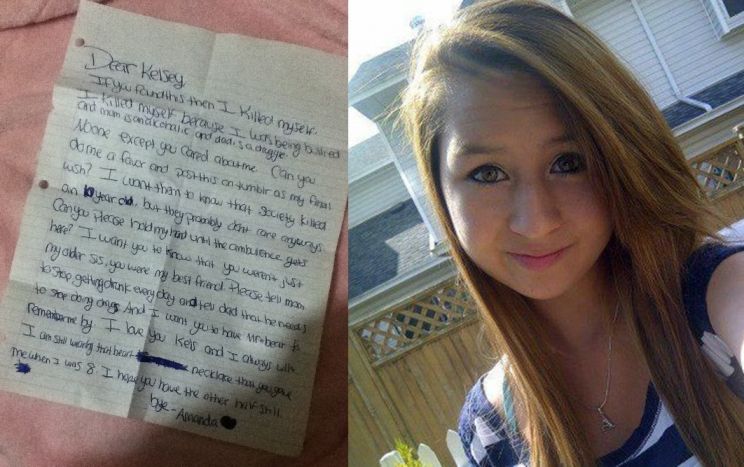 Dear Kelsey,
If you found this then I killed myself.
I killed myself because I was being bullied
and mom is an alcoholic and dad is a druggie.
No one except you cared about me. Can you
do me a favor and post this on tumblr as my final
wish? I want them to know that society killed
an 10 year old. but they probably dont care anyways
Can you please hold my hand until the ambulence gets
here? I want you to know that you weren't just
my older sis, you were my best friend. Please tell mom
to stop getting drunk every day and tell dad that he needs
to stop doing drugs And I want you to have Mr. bear to
remember me by. I love you Kels and I always will
I am still wearing that heart necklace that you gave
me when I was 8. I hope you have the other half still.
bye - Amanda
A